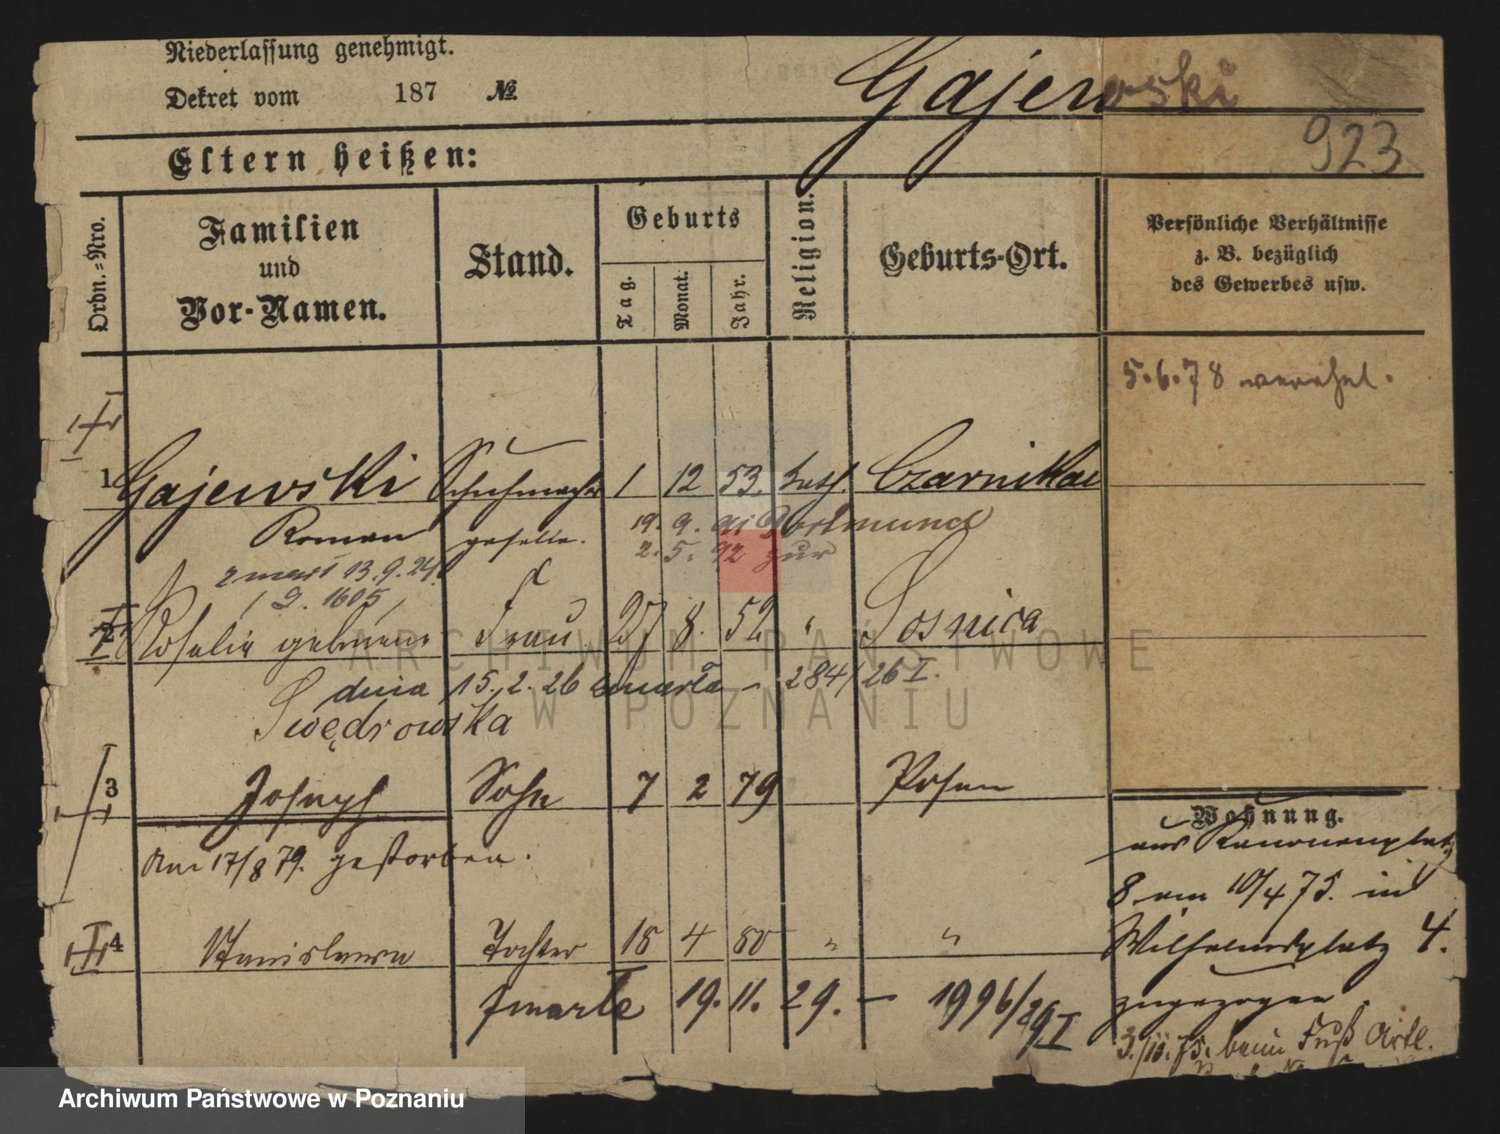 Niederlassung genehmigt.
Dekret vom 187 №
Gajewski
923
Eltern heißen:
Ordn.=Nro.
Familien
und
Vor-Namen.
Stand.
Geburts
Tag.
Monat.
Jahr.
Religion.
Geburts-Ort.
Persönliche Verhältnisse
z. B. bezüglich
des Gewerbes usw.
5.6.78 verehel.
1 Gajewski Schuhmacher 1 12 53. kath. Czarnikau
Roman geselle. 19. 9. Dortmund
2. 5. 92 zur
zmarł 13.9.24
/ 1605 /
2 Rosalie geborene Frau 27 8. 52 " Sosnica
dnia 15. 2. 26 zmarła - 284/26 I.
Swędrowska
3 Joseph Sohn 7 2 79 Posen
Am 17/8 79. gestorben.
4 Stanislawa Tochter 18 4 80 " "
zmarła 19. 11. 29. - 1996/29 I
Wohnung.
aus Kanonenplatz
8 am 10/4 75. in
Wilhelmsplatz 4.
zugezogen
beim Fuß Artl.
ARCHIWUM PAŃSTWOWE
W POZNANIU
Archiwum Państwowe w Poznaniu